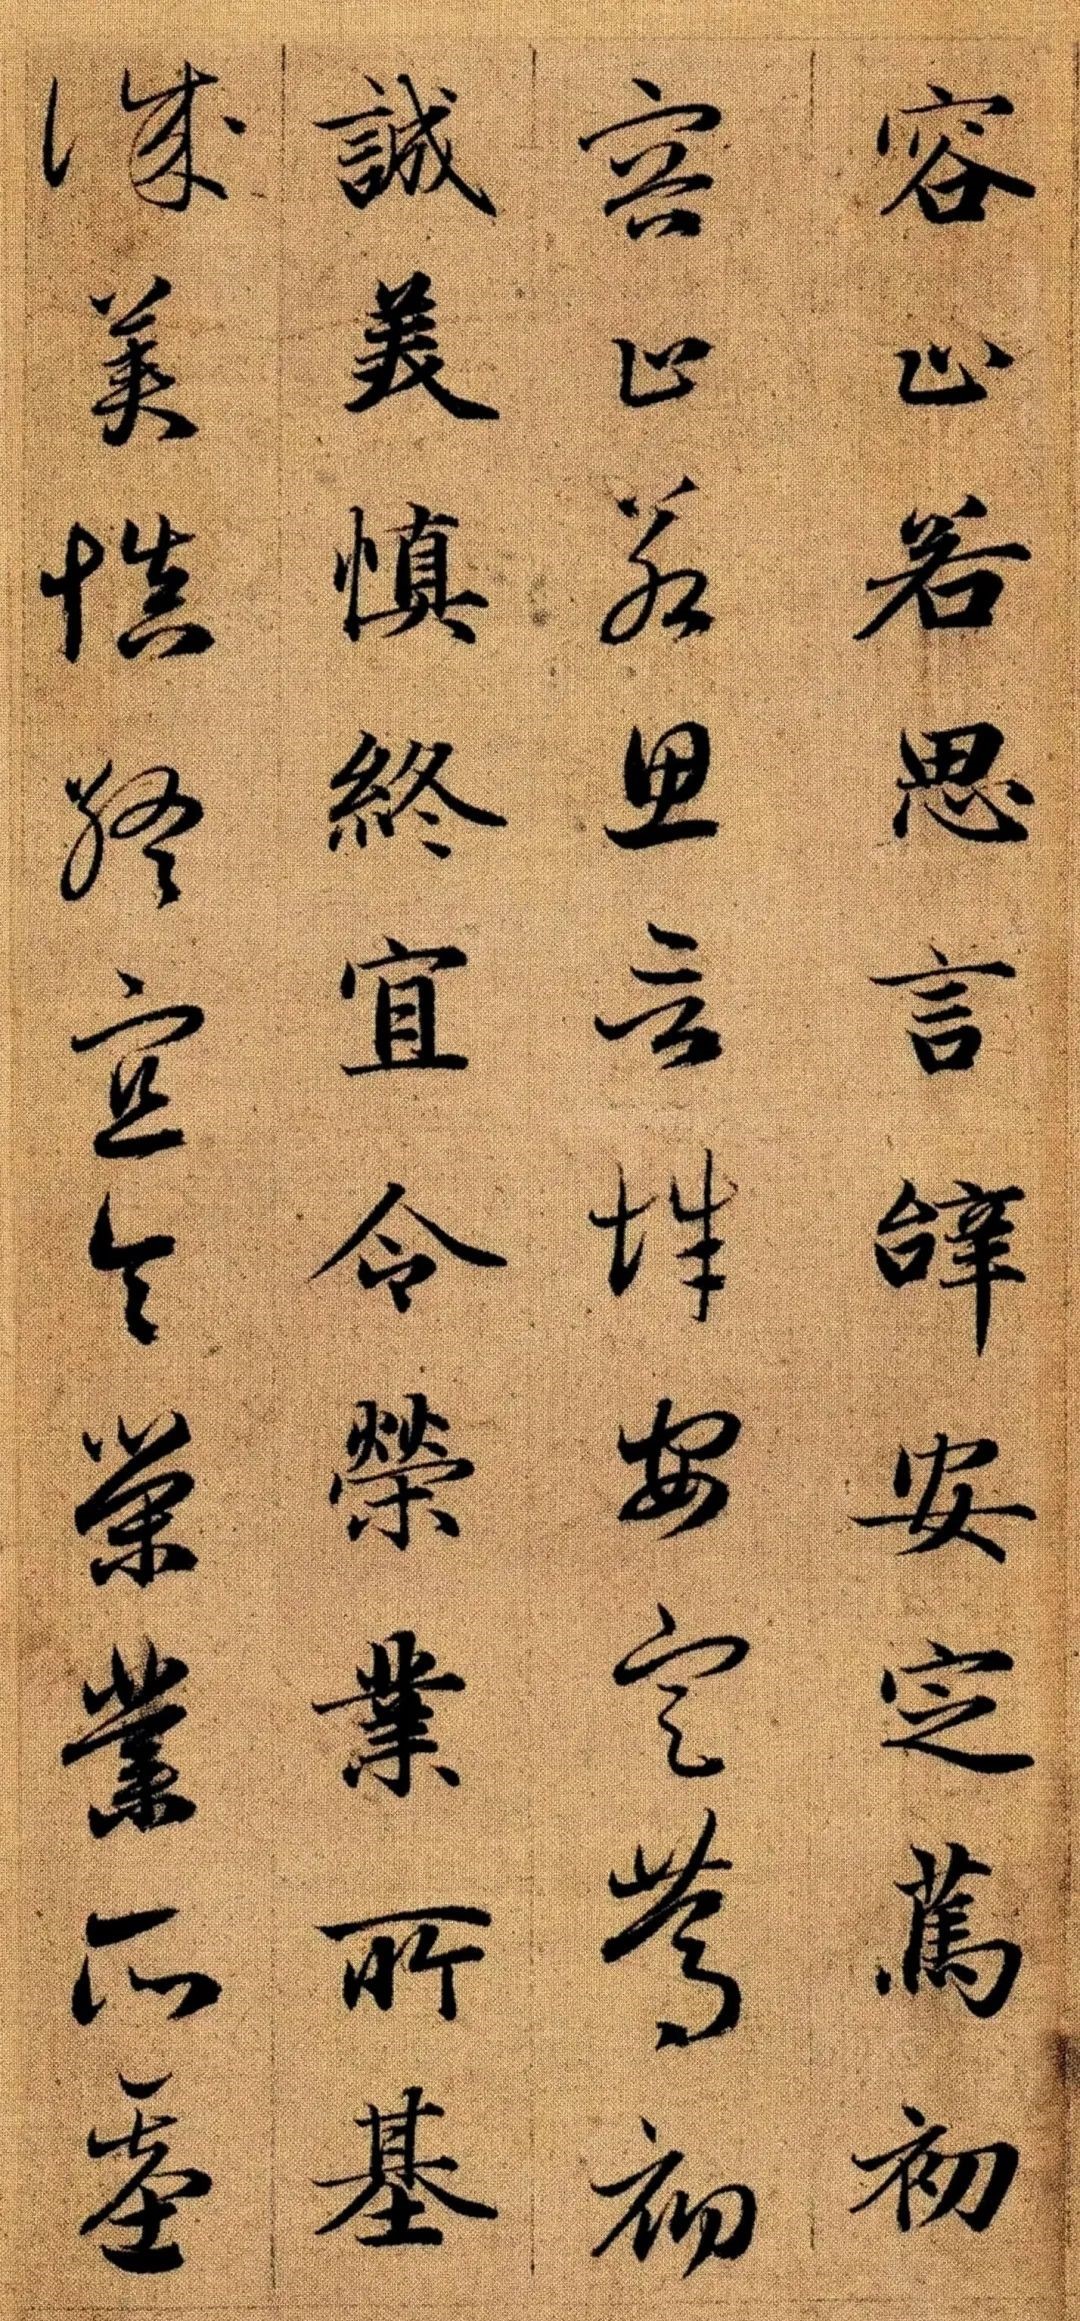 容止若思言辝安定篤初
容止若思言辭安定篤初
誠美慎終宜令榮業所基
誠美慎終宜令榮業所基